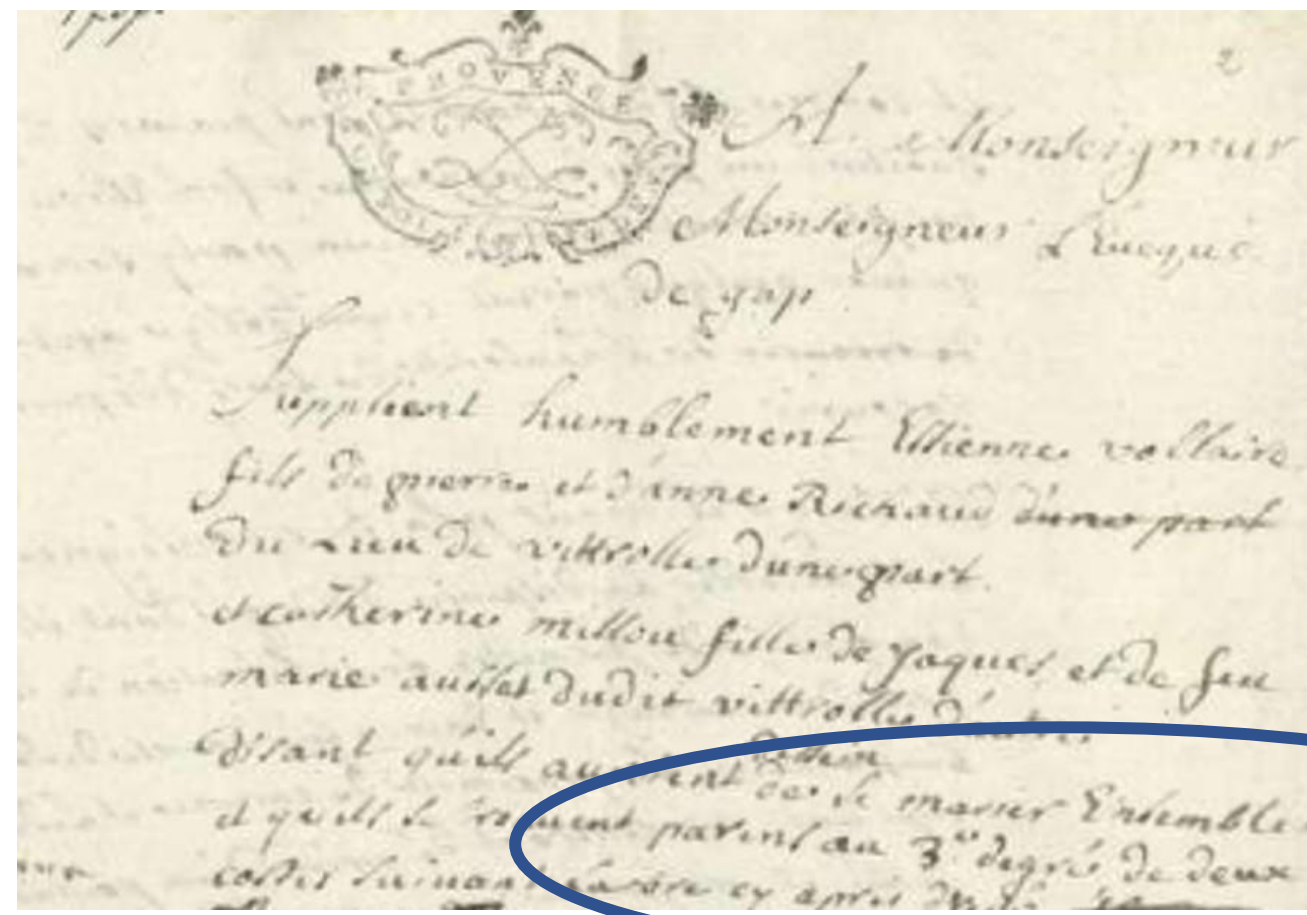 2
PROVENCE
A Monseigneur
Monseigneur L'Eueque
de gap
Supplient humblement Estienne voltaire
fils de pierre et d'anne Richaud d'une part
du Lieu de vittrolles d'une part
et catherine millou fille de Jaques et de feu
marie ausset dudit vittrolles d'autre
dessein
disant qu'ils auroient de se marier Ensemble
et qu'ils se trouvent parens au 3e degré de deux
costés suivant cy apres